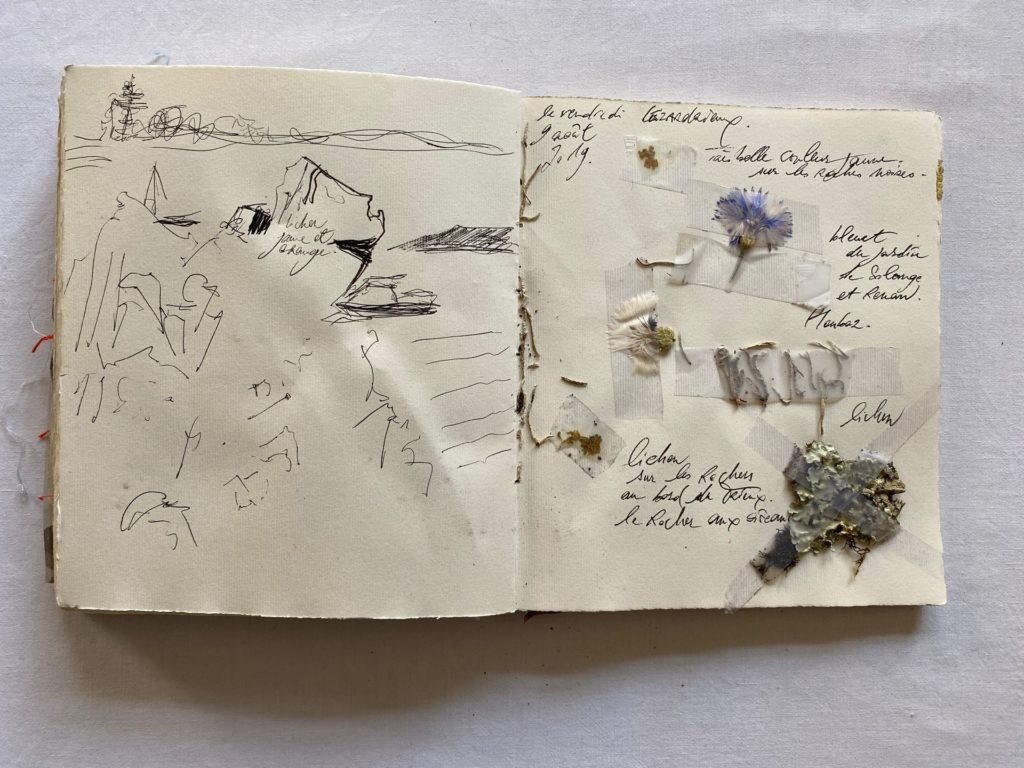 lichen
jaune et
orange.
le vendredi
9 août
2019.
Lézardrieux.
très belle couleur jaune.
sur les roches noires.
bleuet
du jardin
de Solange
et Ronan.
lichen
lichen
sur les Rochers
au bord du Trieux.
le Rocher aux